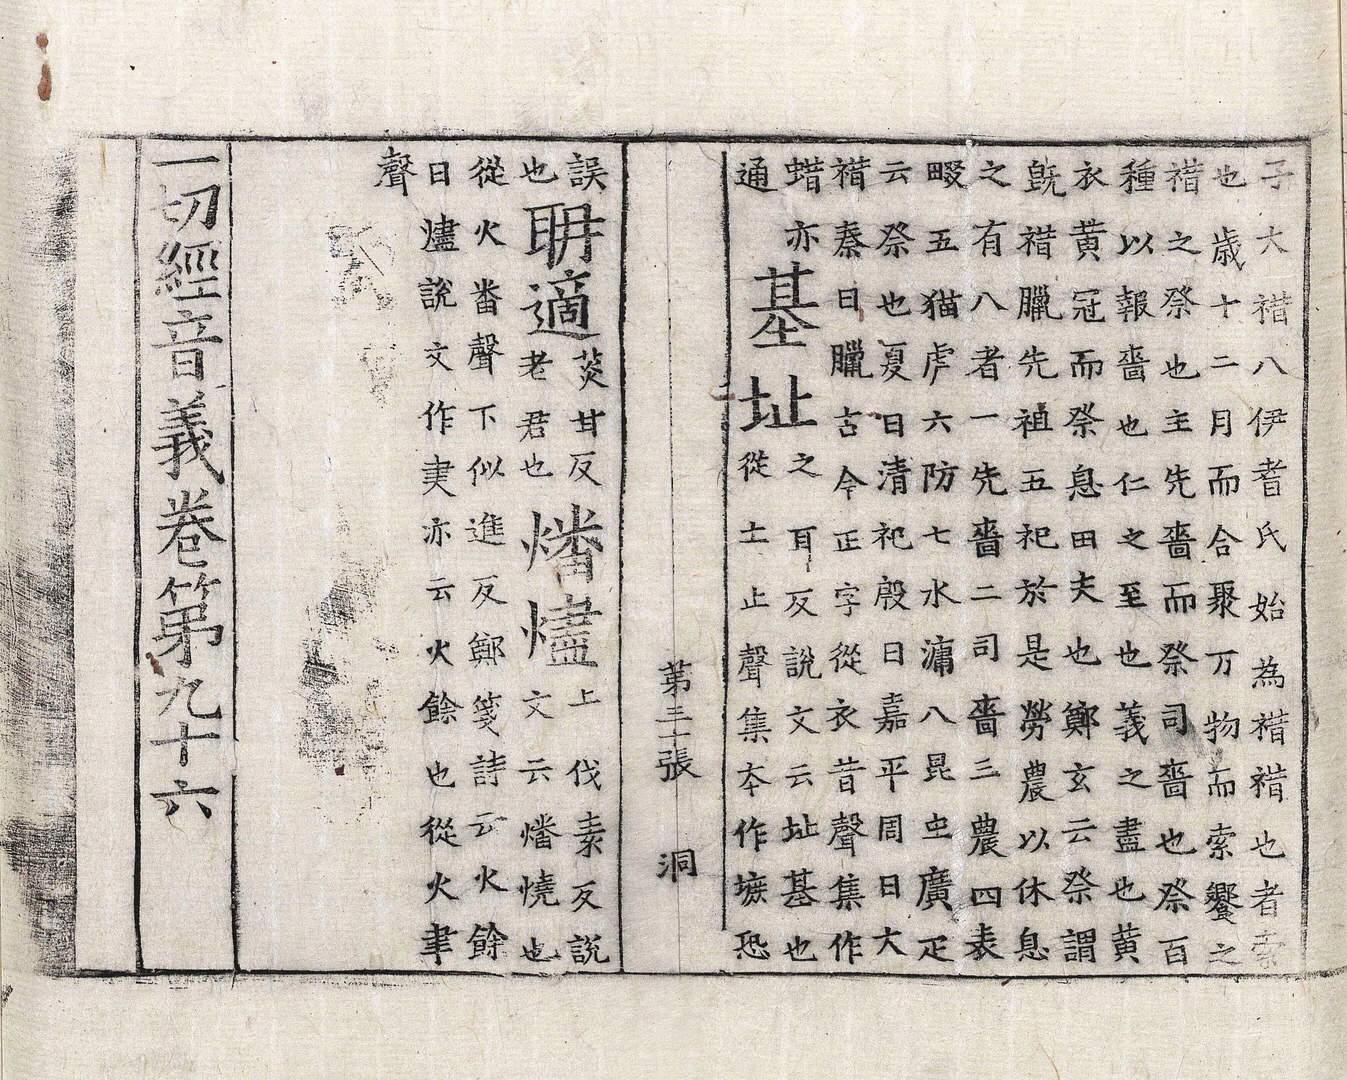 子大䄍八伊耆氏始為䄍䄍也者索
也歳十二月而合聚万物而索饗之
䄍之祭也主先嗇而祭司嗇也祭百
種以報嗇也仁之至也義之盡也黄
衣黄冠而祭息田夫也鄭玄云祭謂
旣䄍臘先祖五祀於是勞農以休息
之有八者一先嗇二司嗇三農四表
畷五猫虎六防七水漕八昆虫廣疋
云祭也夏曰清祀殷曰嘉平周曰大
䄍秦曰臘古今正字從衣昔聲集作
蜡亦
通
基址
之耳反說文云址基也
從土止聲集本作塬恐
第三十張 洞
誤
也
聃適
菼甘反
老君也
燔燼
上伐素反說
文云燔燒也
從火番聲下似進反鄭箋詩云火餘
曰燼說文作㶳亦云火餘也從火聿
聲
一切經音義卷第九十六